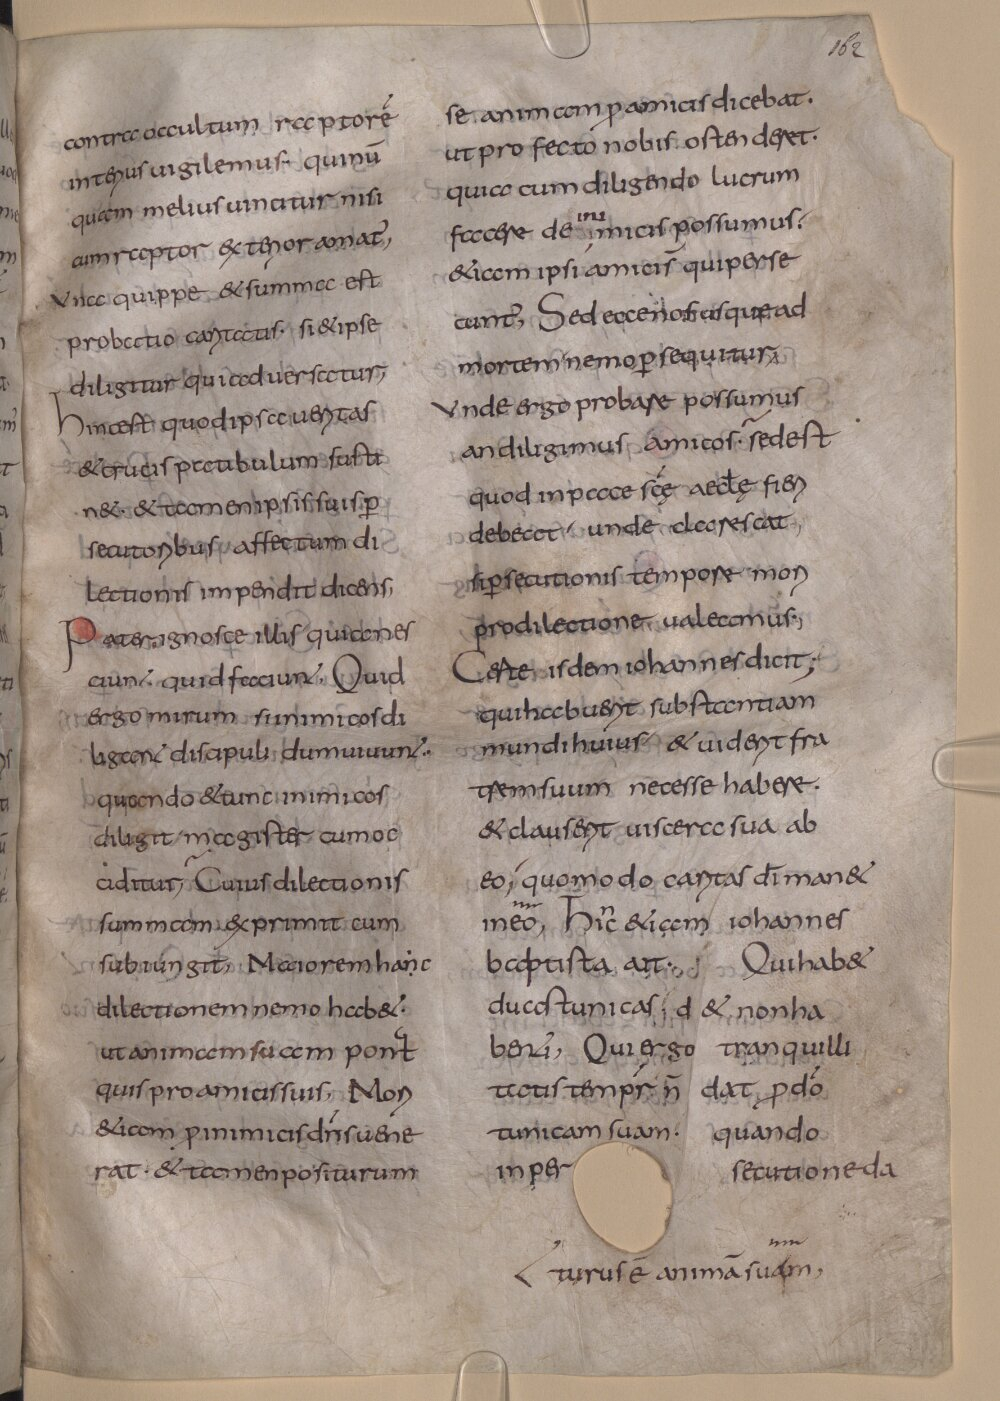 162
contra occultum raptorē
intenus uigilemus. quinū
quam melius uincitur nisi
cum raptor & tenor amat᷒;
Vna quippe & summa est
probatio caritatis. si & ipse
diligitur qui aduersatur;
Hinc est quod ipsa ueritas
& crucis patibulum susti
n&. & tamen ipsis suis ꝑ
secutoribus affectum di
lectionis impendit dicens;
Pater ignosce illis quia nes
ciunt. quid faciunt. Quid
ergo mirum si inimicos di
ligant discipuli dum uiuunt.
quando & tunc inimicos
diligit magister cum oc
ciditur; Cuius dilectionis
summam exprimit cum
subiungit; Maiorem hanc
dilectionem nemo hab&.
ut animam suam ponat
quis pro amicis suis; Mori
&iam ꝑ inimicis dn̄s uene
rat. & tamen positurum
se animam ꝑ amicis dicebat.
ut profecto nobis ostenderet.
quia cum diligendo lucrum
facere de inimicis possumus.
&iam ipsi amici s̄ qui perse
cunt᷒; Sed ecce nos usque ad
mortem nemo ꝑsequitur;
Vnde ergo probare possumus
an diligimus amicos. sed est
quod in pace scē aecl̄ę fieri
debeat unde clarescat,
si ꝑsecutionis tempore mori
pro dilectione ualeamus;
Certe isdem iohannes dicit;
qui habuerit substantiam
mundi huius & uiderit fra
trem suum necesse habere.
& clauserit uiscera sua ab
eo; quomodo caritas dī man&
in eo; Hinc &iam iohannes
baptista ait. Qui hab&
duas tunicas; d & non ha
benti; Qui ergo tranquilli
tatis tempr̄. n̄ dat ꝑ dō
tunicam suam. quando
in per secutione da
turus ē animā suam;